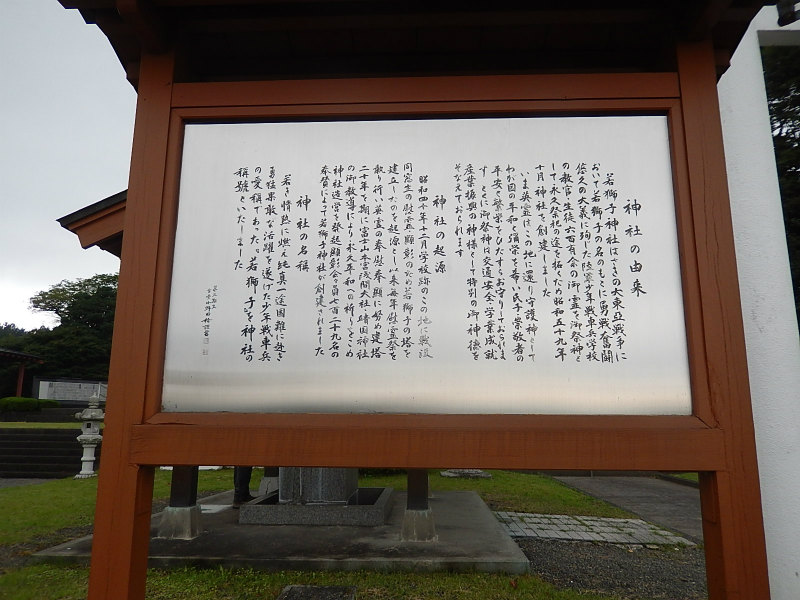 神社の由来
若獅子神社はさきの大東亜戦争に
おいて若獅子の名のもとに勇戦奮闘
悠久の大義に殉じた陸軍少年戦車兵学校
の教官生徒六百有余の御霊を御祭神と
して永久祭祀の途を拓くため昭和五十九年
十月神社を創建しました
いま英霊はこの地に還り守護神として
わが国の平和と彌栄を善い民子の崇敬者の
平安と繁栄をひたすらお守りしておられま
す ともに御祭神は交通安全学業成就
産業振興の神様として特別の御神徳を
そなえておられます
神社の起源
昭和四十年十二月学校跡のこの地に戦没
同窓生の慰霊顕彰のため若獅子の塔を
建立したのを起源とし以来毎年慰霊祭を
執り行い英霊の奉慰奉顕に努め建塔
二十年を期に富士山本宮浅間大社靖国神社
の御教導により永久平和への祈りをこめ
神社造営を発起顕彰会会員七百二十九名の
奉賛によって若獅子神社が創建されました
神社の名称
若き情熱に燃え純真一途国難に赴き
勇猛果敢な活躍を遂げた少年戦車兵
の愛称であった「若獅子」を神社の
称号といたしました